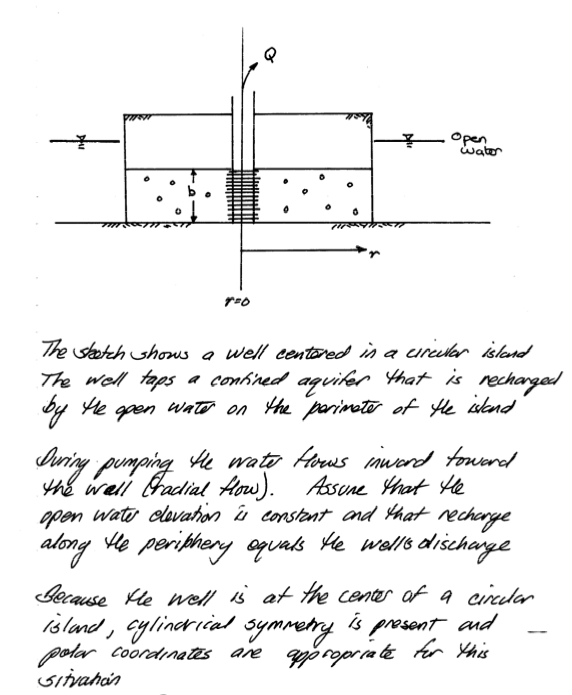 Q
Open
water
b
r
r=0
The sketch shows a well centered in a circular island
The well taps a confined aquifer that is recharged
by the open water on the perimeter of the island
During pumping the water flows inward toward
the well (radial flow). Assume that the
open water elevation is constant and that recharge
along the periphery equals the wells discharge
Because the well is at the center of a circular
island, cylindrical symmetry is present and
polar coordinates are appropriate for this
situation